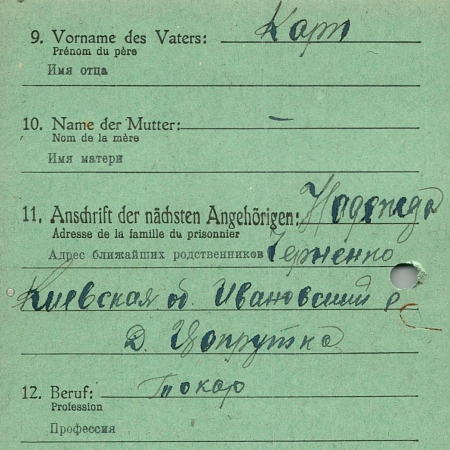 9. Vorname des Vaters: Карп
Prénom du père
Имя отца
10. Name der Mutter: —
Nom de la mère
Имя матери
11. Anschrift der nächsten Angehörigen: Надежда
Adresse de la famille du prisonnier
Адрес ближайших родственников Черненко
Киевская об. Ивановский р
д. Цопрутка
12. Beruf: Токар
Profession
Профессия